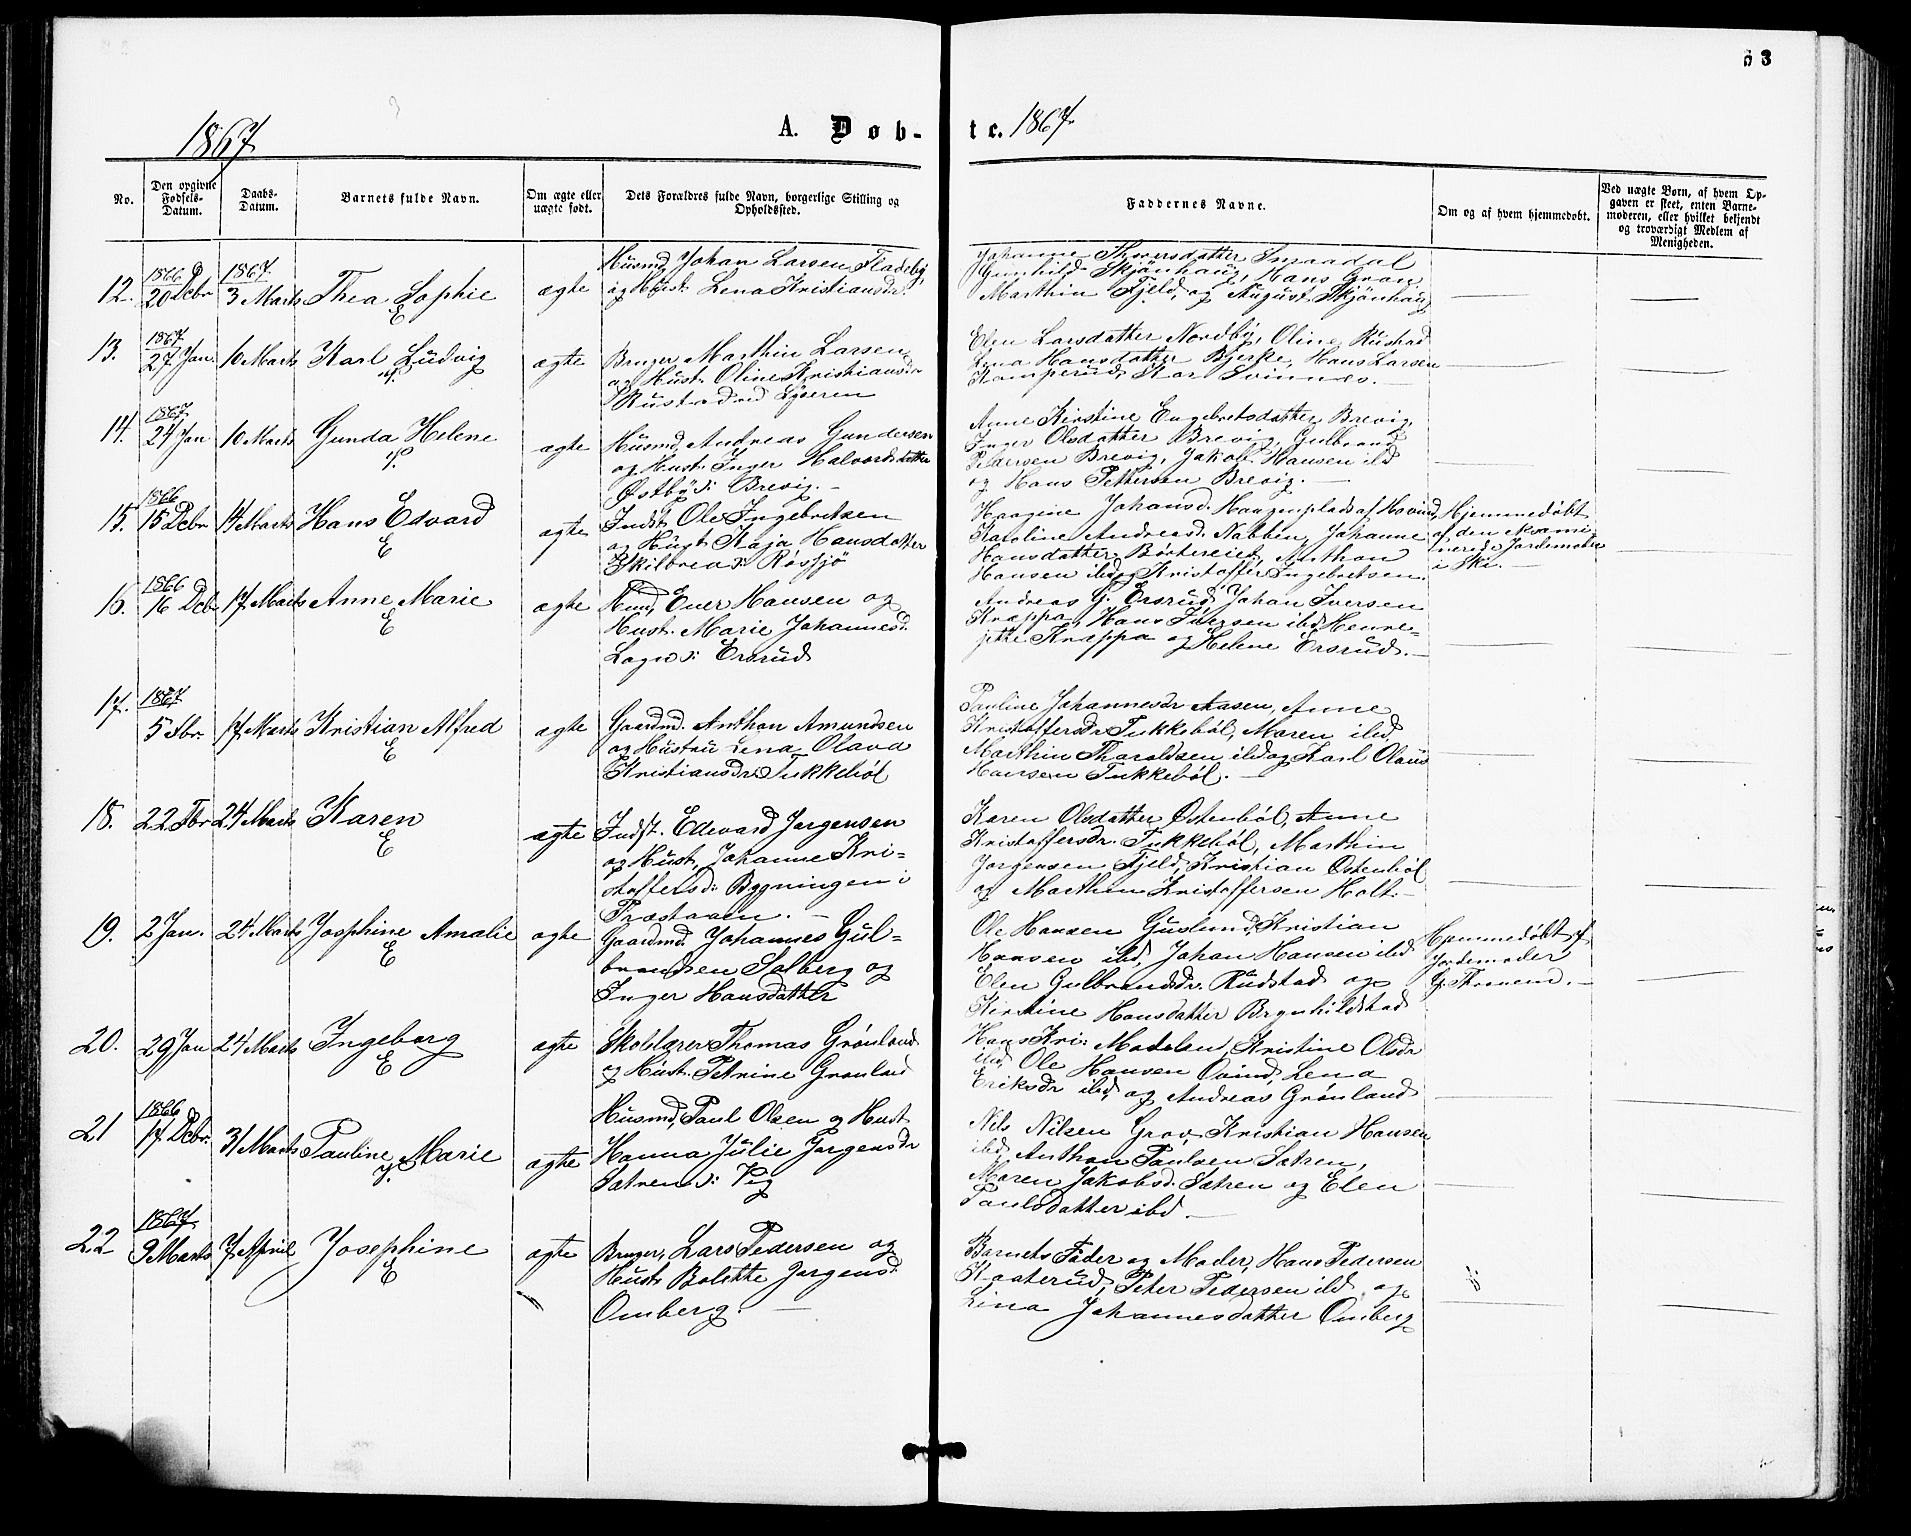 63
1867
A. Døb-
te. 1867.
No.
Den opgivne Fødsels-Datum.
Daabs-Datum.
Barnets fulde Navn.
Om ægte eller uægte født.
Dets Forældres fulde Navn, borgerlige Stilling og Opholdssted.
Faddernes Navne.
Om og af hvem hjemmedøbt.
Ved uægte Børn, af hvem Opgaven er skeet, enten Barnemoderen, eller hvilket bekjendt og troværdigt Medlem af Menigheden.
12. 1866 20 Decbr 1867. 3 Marts Thea Sophie E ægte
Husmd. Johan Larsen Fladeby
og Hust. Lena Kristiansdr.
Johanne Thoresdatter Smaadal
Gunhild Skjönhaug, Hans Gran,
Marthin Fjeld, og August Skjönhaug
13. 1867 27 Jan. 10 Marts Karl Ludvig ægte
Bruger Marthin Larsen
og Hust. Oline Kristiansdr
Rustad ved Lyseren
Elen Larsdatter Nordby, Oline Rustad
Lena Hansdatter Bjerke, Hans Larsen
Kamperud, Kar Svinnes.
14. 1867 24 Jan 10 Marts Gunda Helene ægte
Husmd. Andreas Gundersen
og Hust. Inger Halvorsdatter
Østby s: Brevig. -
Anne Kirstine Engebretsdatter Brevig,
Inger Olsdatter Brevig, Gulbrand
Pedersen Brevig, Jakob Hansen ibd
og Hans Pettersen Brevig. -
15. 1866 15 Decbr 14 Marts Hans Edvard E ægte
Indst. Ole Ingebretsen
og Hust. Kaja Hansdatter
Skilbred s: Røssjö
Haagine Johansd. Haugenplads af Hovind,
Karoline Andreasd. Nabben, Johanne
Hansdatter Börtereiet, Anthon
Hansen ibd og Kristoffer Ingebretsen.
Hjemmedøbt
af den exami-
nerede Jordemoder
i Ski. -
16. 1866 16 Decbr 17 Marts Anne Marie E ægte
Huusmd. Ever Hansen og
Hust. Marie Johannesd.
Lagus: Ersrud
Andreas G. Ersrud, Johan Iversen
Krappa, Hans Iversen ibd, Henre-
jette Krappa og Helene Ersrud. -
17. 1867 5 Fbr. 17 Marts Kristian Alfred E ægte
Gaardmd. Anthon Amundsen
og Hustru Lena Olava
Kristiansdr. Tukkebøl
Pauline Johannesdr Aasen, Anne
Kristoffersdr Tukkebøl, Maren ibd,
Marthin Tharaldsen ibd og Karl Olaus
Hansen Tukkebøl. -
18. 22 Fbr 24 Marts Karen E ægte
Indst. Edevard Jørgensen
og Hust. Johanne Kri-
stoffersd: Bygningen i
Præstaaen. -
Karen Olsdatter Østenbøl, Anne
Kristoffersdr. Tukkebøl, Marthin
Jørgensen Fjeld, Kristian Østenbøl
og Marthin Kristoffersen Holt. -
19. 2 Jan. 24 Marts Josephine Amalie E ægte
Gaardmd. Johannes Gul-
brandsen Solberg og
Inger Hansdatter
Ole Hansen Guslund, Kristian
Hansen ibd, Johan Hansen ibd
Elen Gulbrandsdr. Rudstad og
Kirstine Hansdatter Brynhildstad
Hjemmedøbt af
Jordemoder
20. 29 Jan 24 Marts Ingeborg E ægte
Skolelærer Thomas Grønland
og Hust. Petrine Grønland
Hans Kri: Madsen, Kristine Olsdr
ibd, Ole Hansen Ovind, Lena
Eriksdr ibd, og Andreas Grønland
21 1866 17 Decbr. 31 Marts Pauline Marie ægte
Husmd. Paul Olsen og Hust
Hanna Julie Jørgensdr
Sætren s: Vig
Nils Nilsen Grav, Kristian Hansen
ibd, Anthon Paulsen Sætren,
Maren Jakobsd. Sætren og Elen
Paulsdatter ibd -
22 1867 9 Marts 7 April Josephine E ægte
Bruger, Lars Pedersen og
Hust. Bolette Jørgensd.
Omberg. -
Barnets Fader og Moder, Hans Pedersen
Kaaterud, Peter Pedersen ibd og
Lina Johannesdatter Omberg